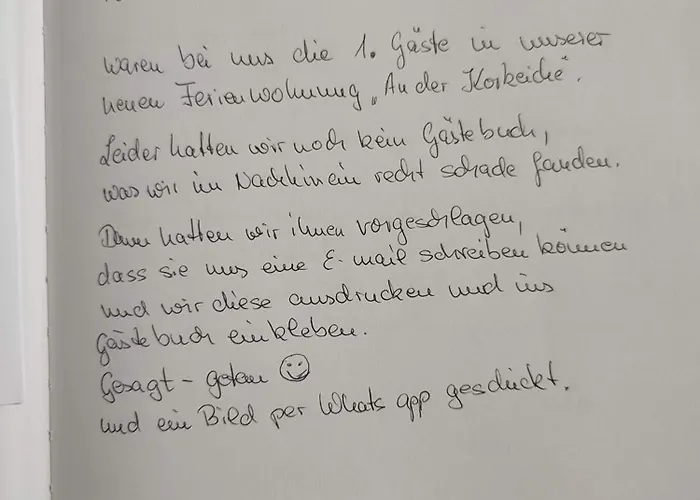 waren bei uns die 1. Gäste in unserer
neuen Ferienwohnung „An der Korkeiche".
Leider hatten wir noch kein Gästebuch,
was wir im Nachhinein recht schade fanden.
Dann hatten wir ihnen vorgeschlagen,
dass sie uns eine E-mail schreiben können
und wir diese ausdrucken und ins
Gästebuch einkleben.
Gesagt - getan ☺
und ein Bild per Whats app geschickt.